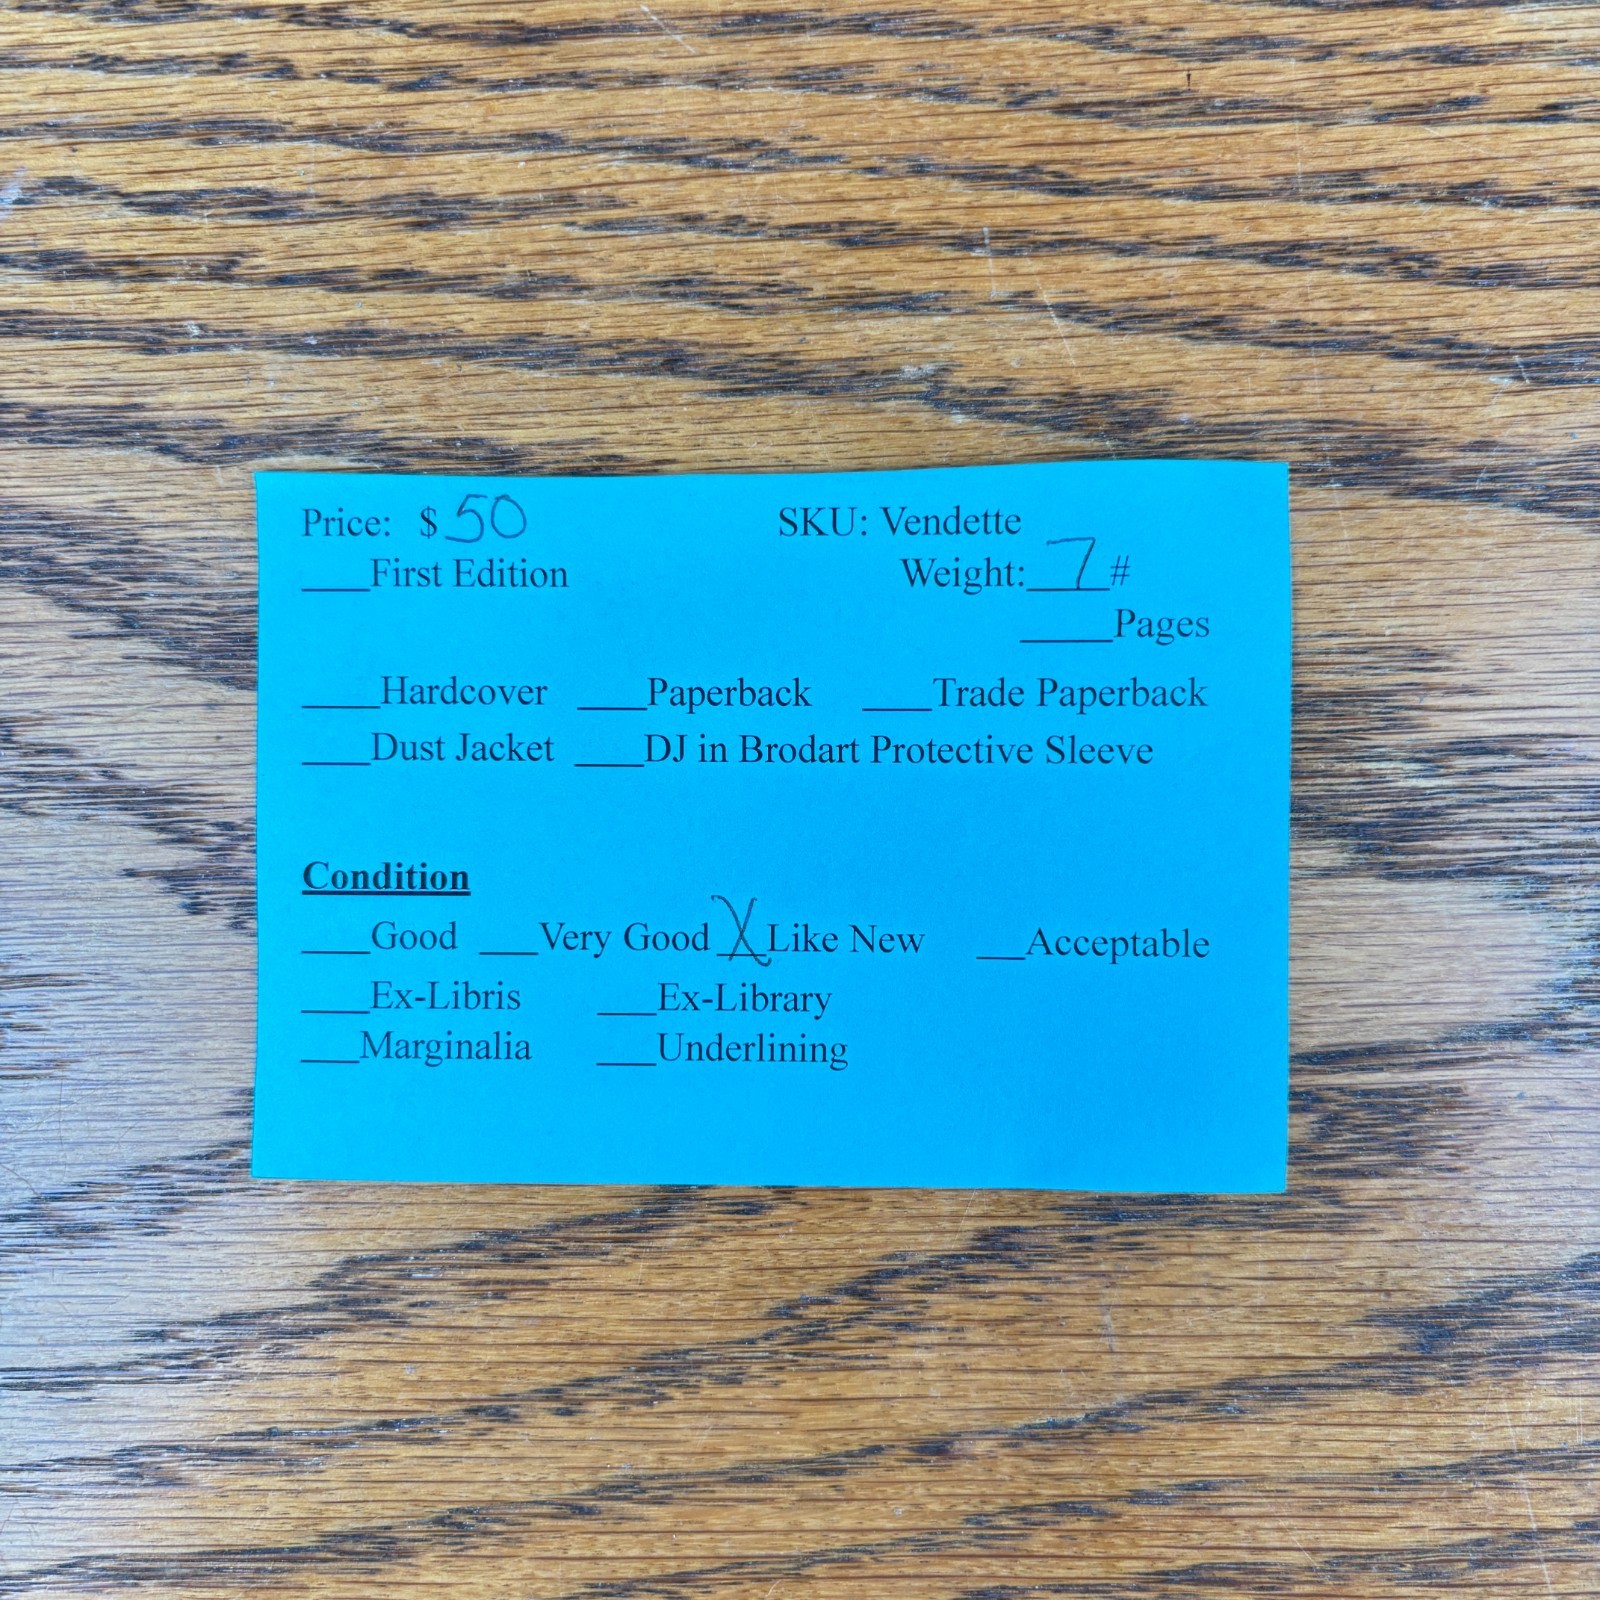 Price: $ 50 SKU: Vendette
___First Edition Weight: 7 #
____Pages
___Hardcover ___Paperback ___Trade Paperback
___Dust Jacket ___DJ in Brodart Protective Sleeve
Condition
___Good ___Very Good X Like New __Acceptable
___Ex-Libris ___Ex-Library
___Marginalia ___Underlining